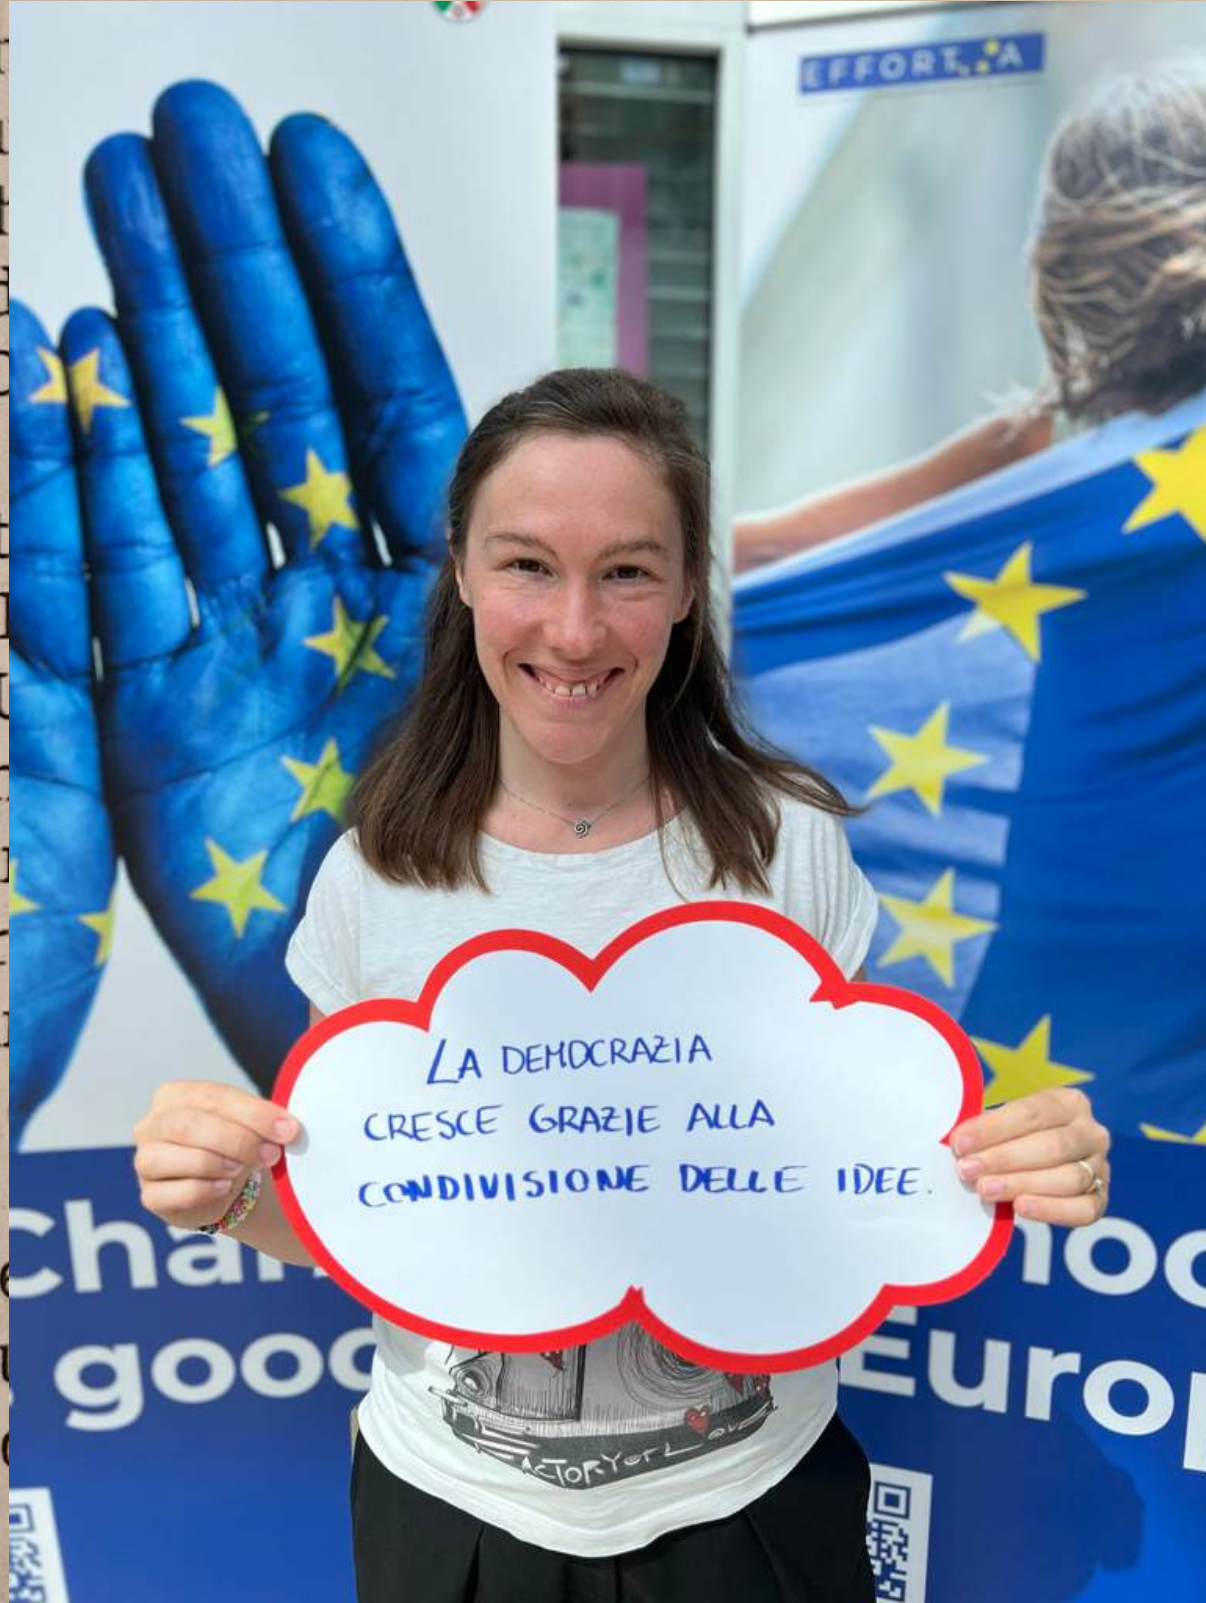 EFFORT A
LA DEMOCRAZIA
CRESCE GRAZIE ALLA
CONDIVISIONE DELLE IDEE.
good
FACTORY OF LOVE